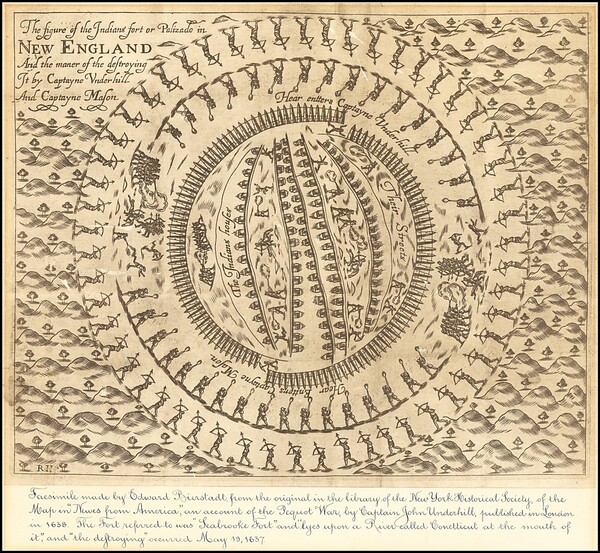 The figure of the Indians fort or Palizado in
NEW ENGLAND
And the maner of the destroying
It by Captayne Vnderhill
And Captayne Mason
Hear entters Captayne Vnderhill
Their Streets
The Indians houses
Hear Entters Captayne Mason
RH
Facsimile made by Edward Bierstadt, from the original in the library of the New York Historical Society, of the
Map in "Newes from America," an account of the Pequot War, by Captain John Underhill, published in London
in 1638. The Fort referred to was "Seabrooke Fort" and "lyes upon a River called Conettiuut at the mouth of
it," and "the destroying" occurred May 19, 1637.